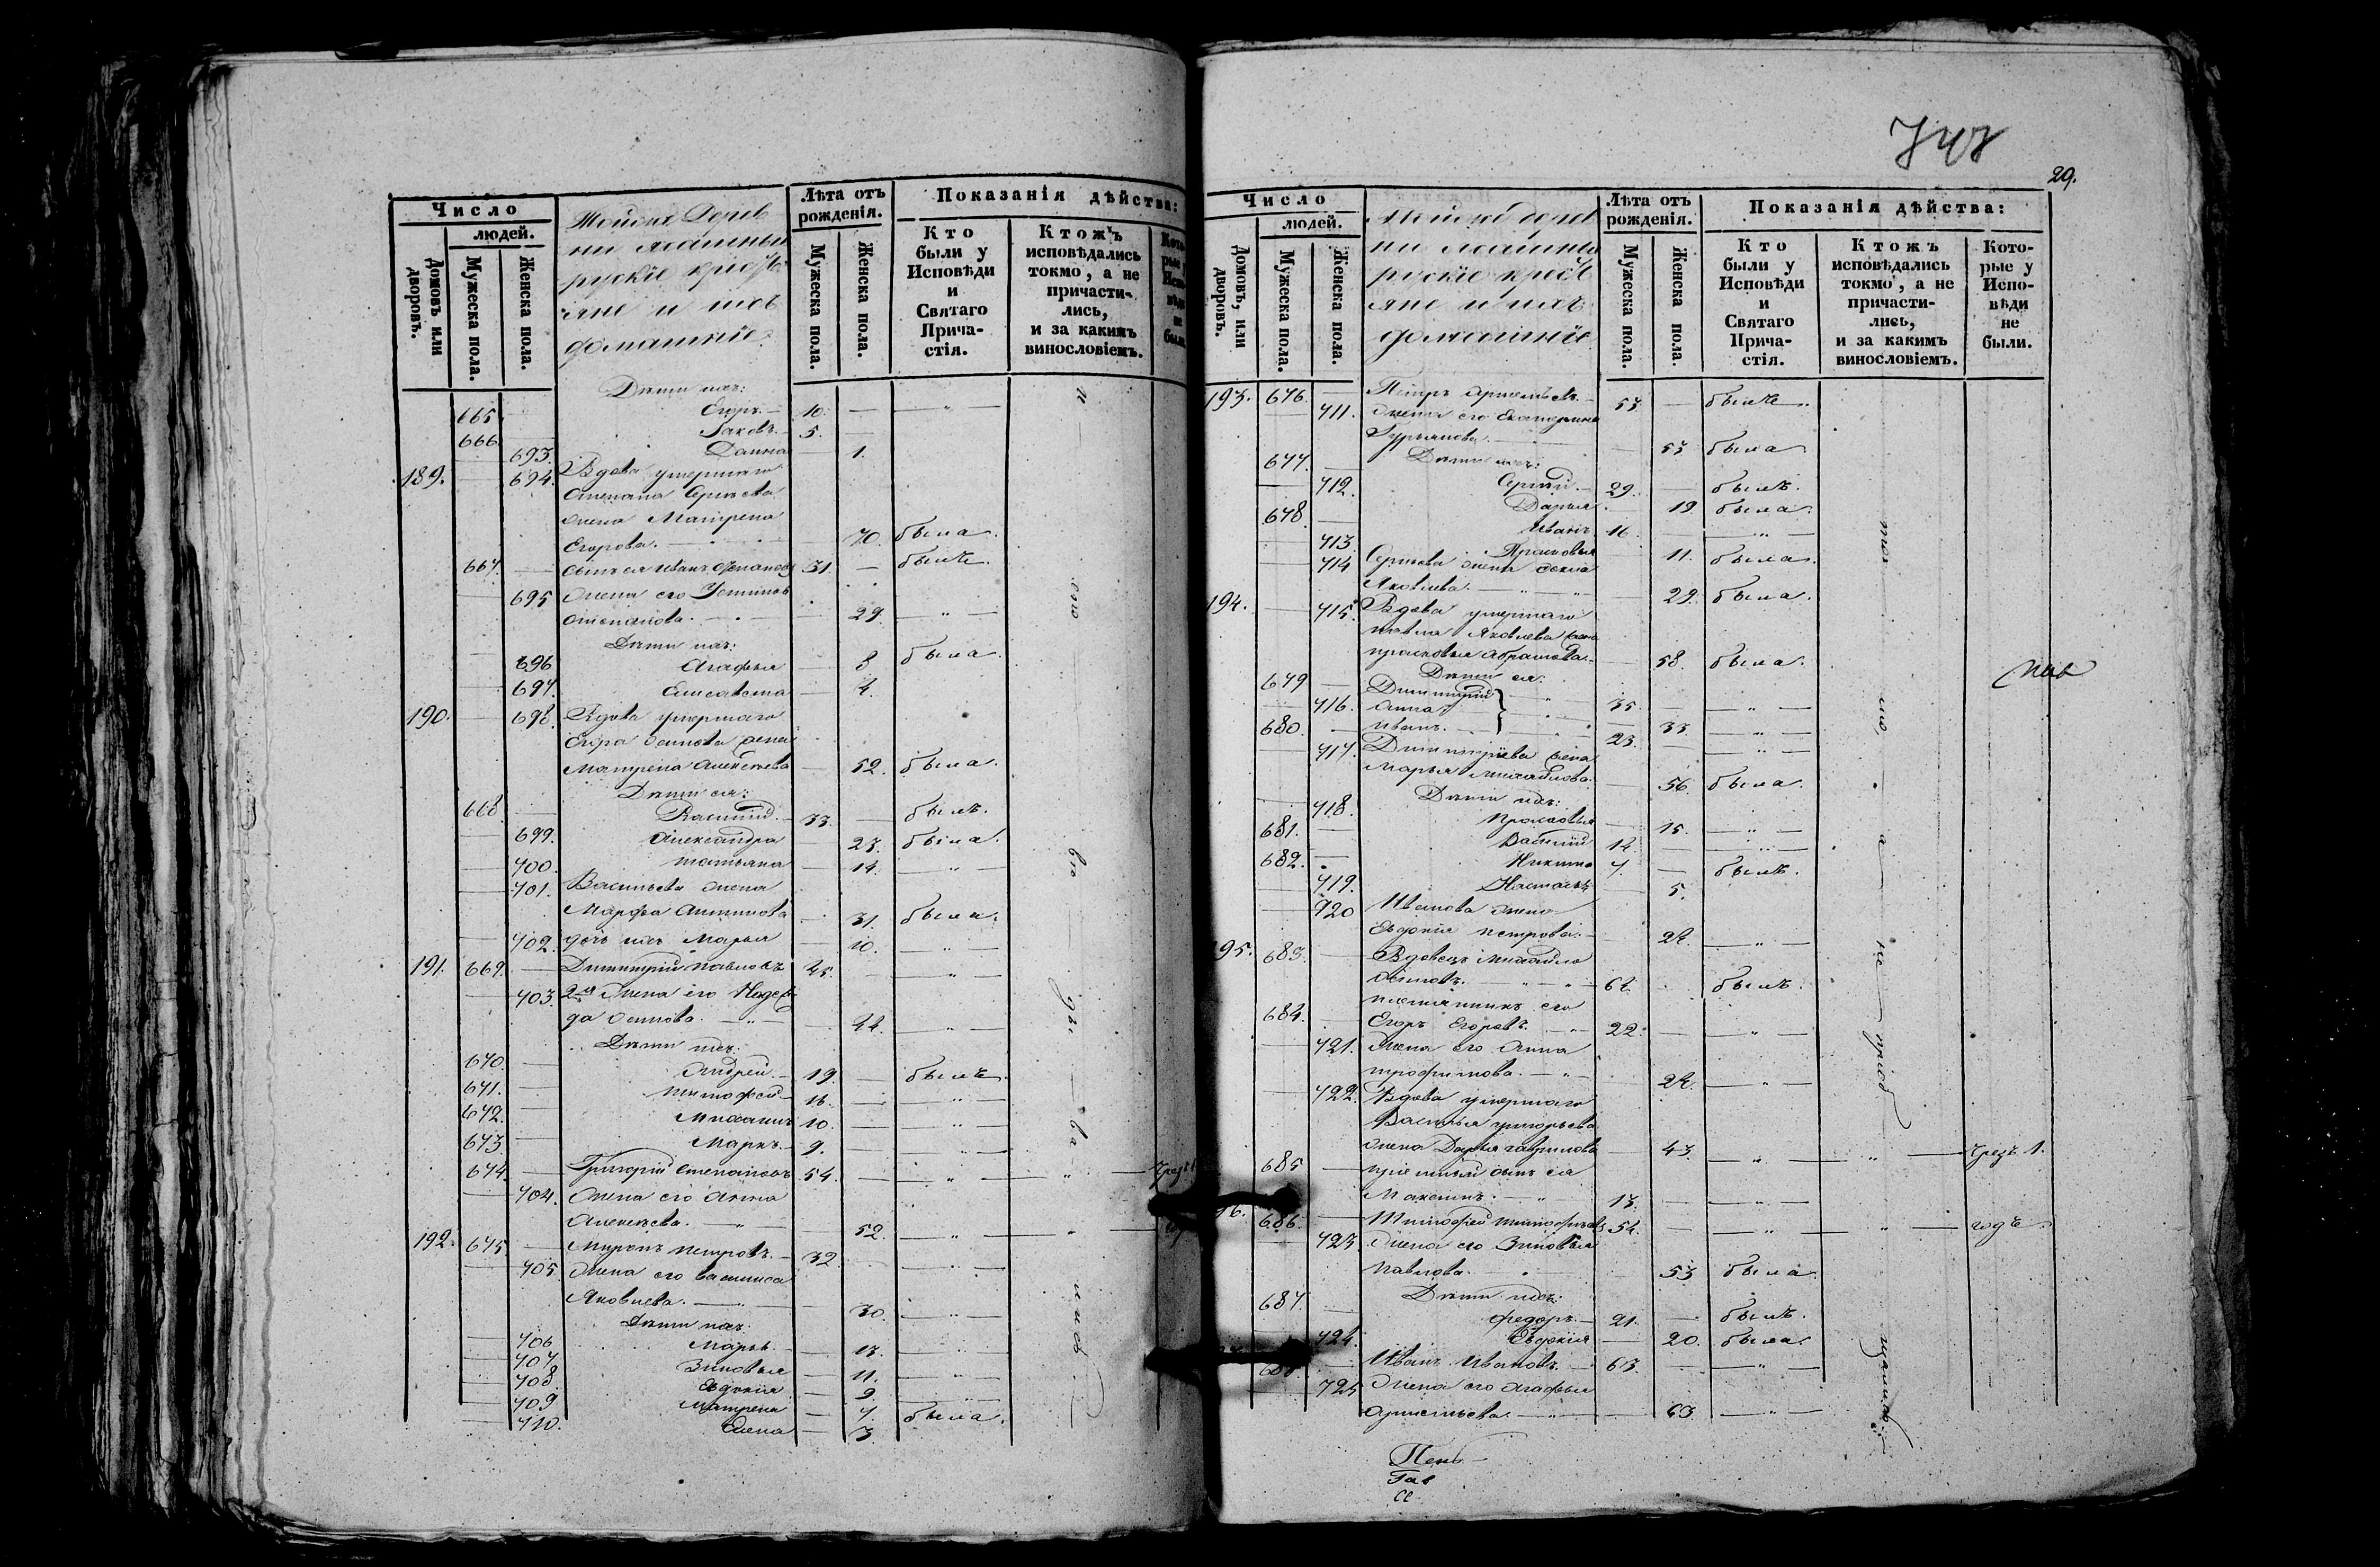 Число
людей.
Домовъ или дворовъ.
Мужеска пола.
Женска пола.
Тойжъ Дерев
ни
рускіе кресть
яне и ихъ
домашніе:
Лѣта отъ рожденія.
Мужеска пола.
Женска пола.
Показанія дѣйства:
Кто были у Исповѣди и Святаго Прича-стія.
Ктожъ исповѣдались токмо, а не причасти-лись, и за какимъ винословіемъ.
Дѣти ихъ:
665. Егоръ. 10.
666. Іаковъ. 5.
693. Домна 1.
189. 694. Вдова умершаго
Степана Сергѣева
жена Матрена
Егорова. 70. была.
667. сынъ ея Иванъ Степановъ 31. былъ.
695 жена его Устинья
Степанова. 29. „
Дѣти ихъ:
696 Агафья 8 была.
697. Елисавета 4.
190. 698. Вдова умершаго
Егора Осипова жена
Матрена Алексѣева 52. была.
Дѣти ея:
668. Василій. 33. былъ.
699. Александра 23. была.
700. Татьяна 14. „
701. Васильева жена
Марфа Антипова 31. была.
702. дочь ихъ Марья 10. „
191. 669. Димитрій Павловъ 45. „
703. 2я жена его Надеж
да Осипова. 44. „
Дѣти ихъ:
670. Андрей. 19. былъ.
671. Тимофей 16. „
672. Михаилъ 10. „
673. Маркъ. 9. „
674. Григорій Степановъ 54. „ „
704. жена его Анна
Алексѣева. 52. „ „
192. 675. Миронъ Петровъ. 32 „
705 жена его Василиса
Яковлева. 30. „
Дѣти ихъ:
706 Марья. 13. „
707 Зиновья 11. „
708 Евдокія 9 „
709 Матрена 7. была.
710. Елена 3.
29.
Число
людей.
Домовъ, или дворовъ.
Мужеска пола.
Женска пола.
Тойжъ дерев
ни
рускіе кресть
яне и ихъ
домашніе
Лѣта отъ рожденія.
Мужеска пола.
Женска пола.
Показанія дѣйства:
Кто были у Исповѣди и Святаго Прича-стія.
Ктожъ исповѣдались токмо, а не причасти-лись, и за какимъ винословіемъ.
Кото-рые у Испо-вѣди не были.
193. 676. Петръ Артемьевъ. 53. былъ.
711. жена его Екатерина
Гурьянова. 53 была
Дѣти ихъ:
677. Сергій. 29. былъ.
712. Дарья 19. была.
678. Иванъ 16. „
713. Прасковья 11. была.
714 Сергѣева жена
Яковлева. 29. была.
194. 715. Вдова умершаго
Павла Яковлева жена
Прасковья Абрамова. 58. была.
Дѣти ея:
679 Димитрій 35. „
716. Анна 33 „
680. Иванъ. 23. „
717. Димитріева жена
Марья Михайлова. 36. была.
Дѣти ихъ:
718. Прасковья 15. „
681. Василій 12. „
682. Никита 7. былъ.
719. Настасья 5.
720 Иванова жена
Евдокія Петрова. 24. „
195. 683. Вдовецъ Михайло
Осиповъ. 64. былъ.
племянникъ его
684. Егоръ Егоровъ. 22. „
721. жена его Анна
Трофимова. 24. „
722. Вдова умершаго
Василья Григорьева
жена Дарья Гаврилова 43. „ „ чрезъ 1.
685 пріемный сынъ ея
Максимъ. 13. „
686. Тимофей Тимофѣевъ 54. „ „ годъ
723. жена его Зиновья
Павлова. 53 была
Дѣти ихъ:
687. Федоръ. 21. былъ.
724. Евдокія 20. была.
Иванъ Ивановъ. 63. „
725 жена его Агафья
Артемьева. 63. „